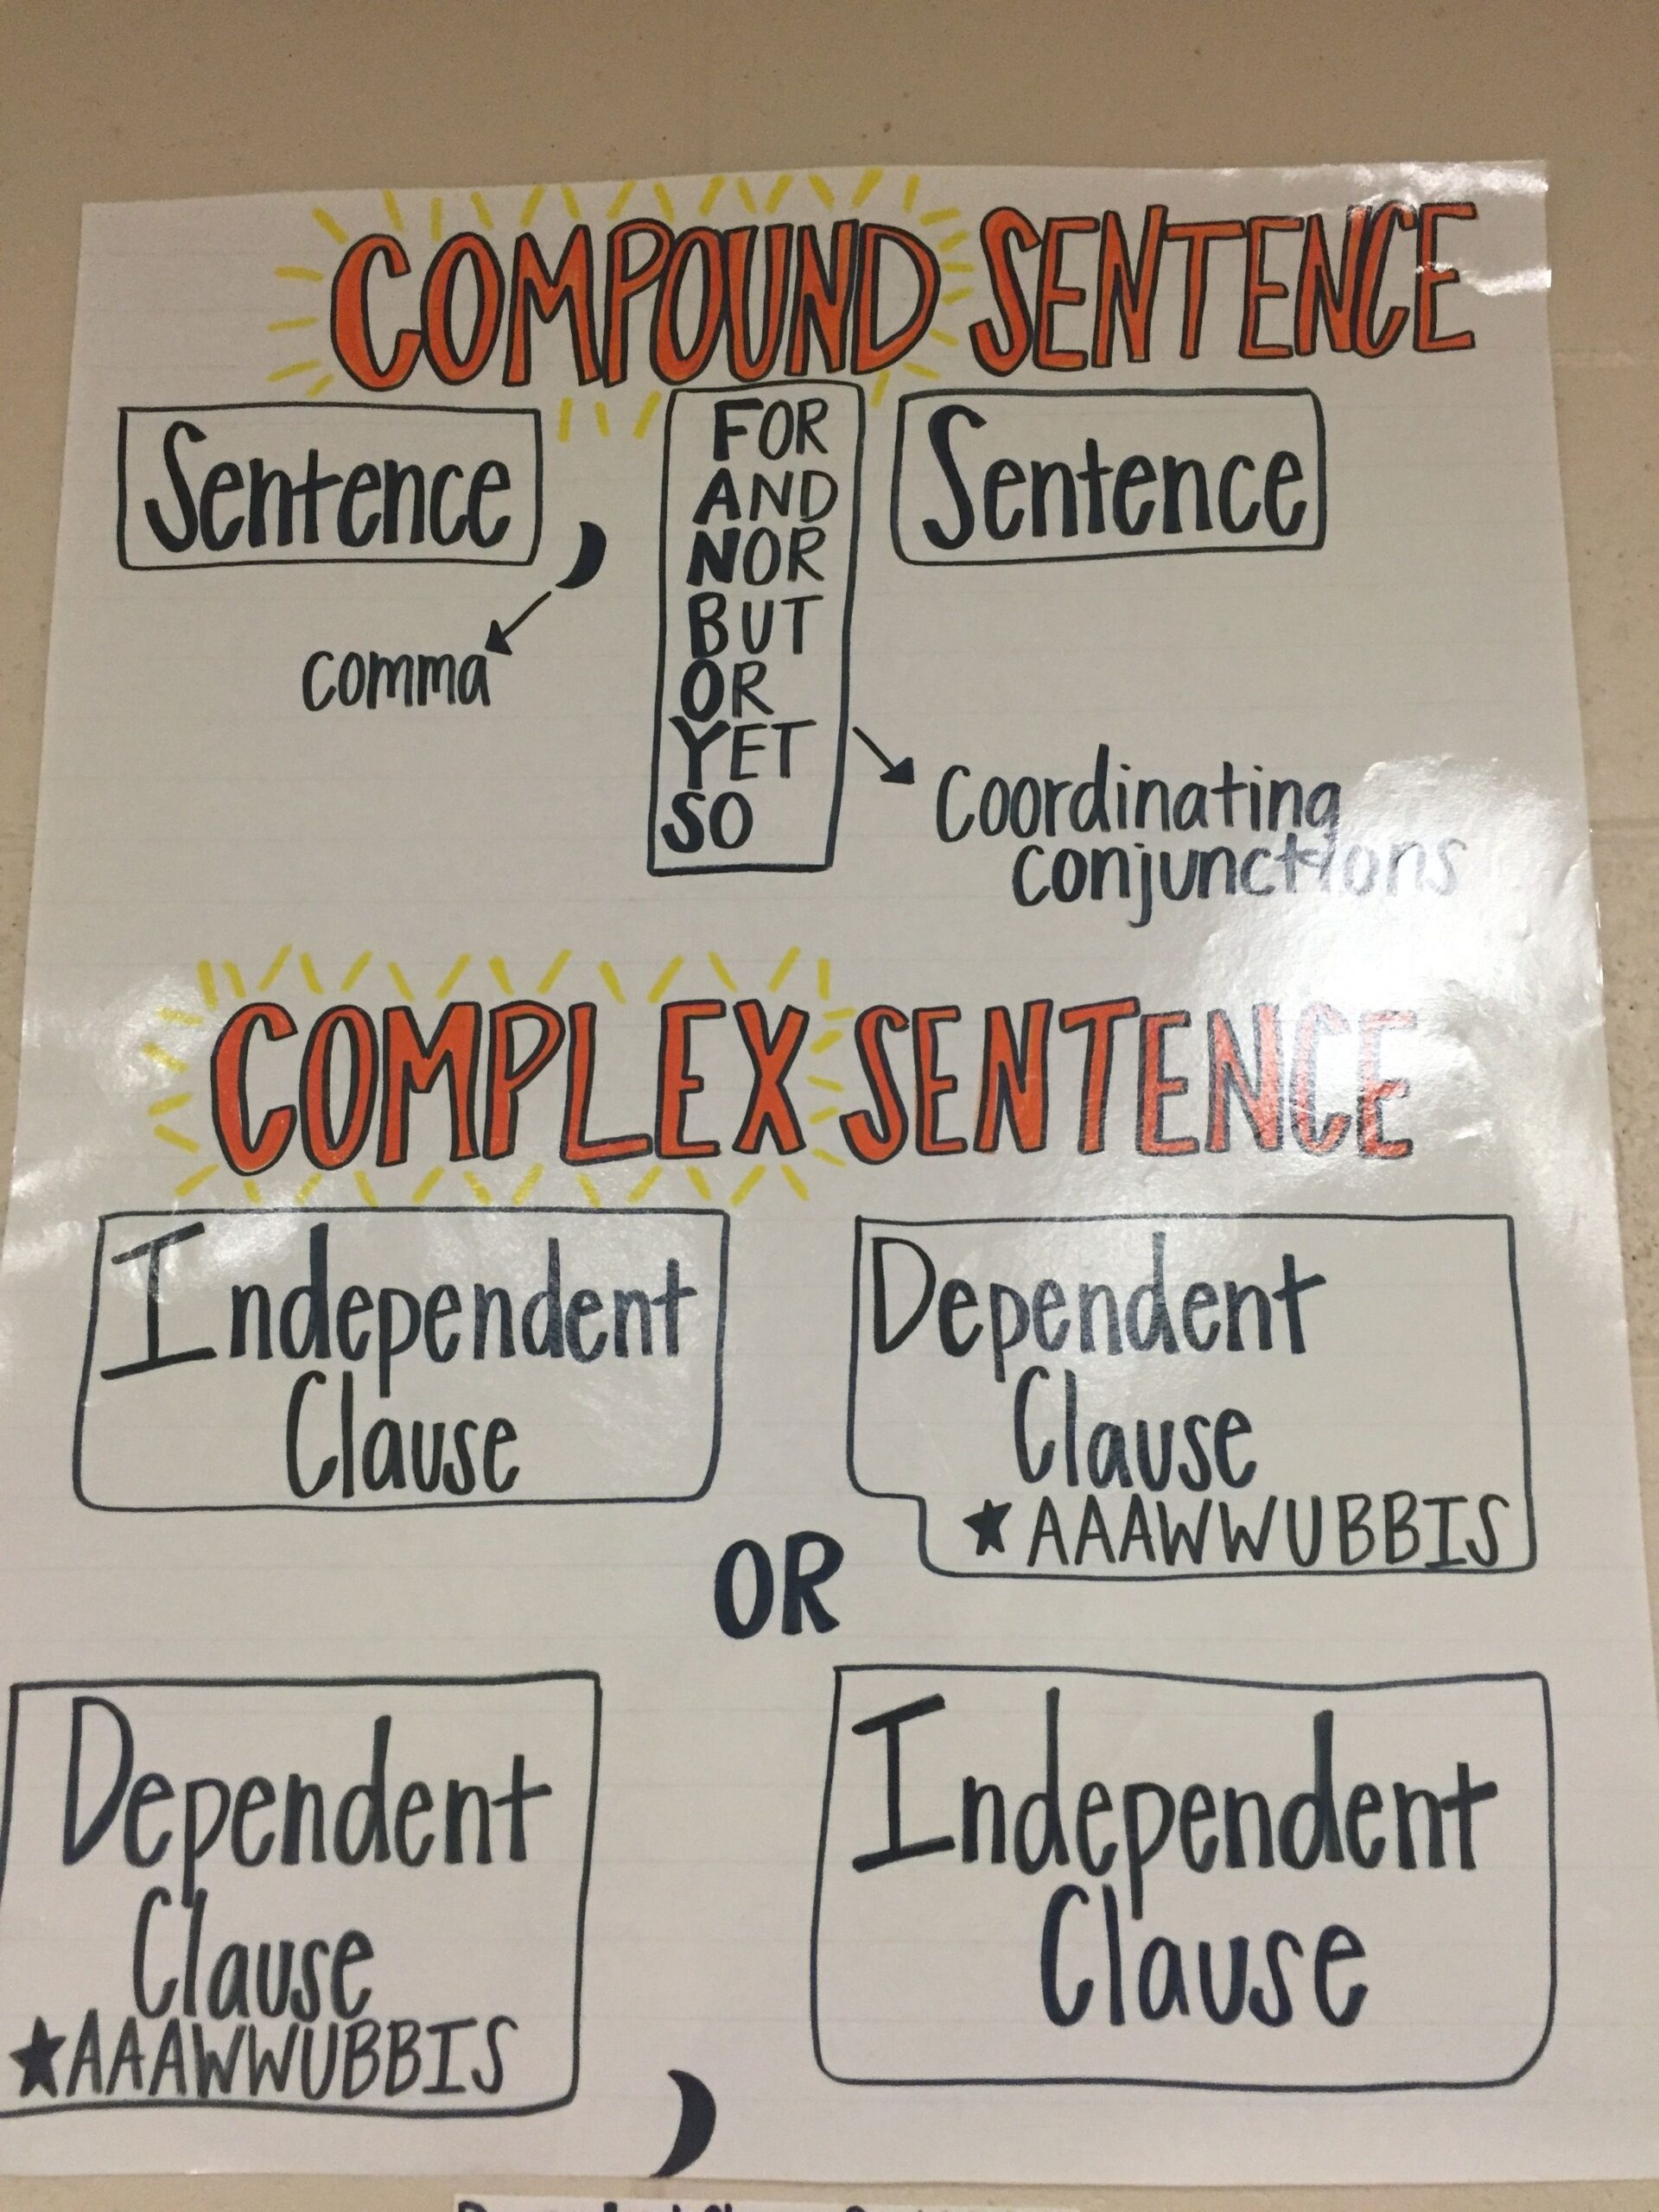 COMPOUND SENTENCE
Sentence
,
FOR
AND
NOR
BUT
OR
YET
SO
Sentence
comma
Coordinating
conjunctions
COMPLEX SENTENCE
Independent
Clause
Dependent
Clause
★AAAWWUBBIS
OR
Dependent
Clause
★AAAWWUBBIS
,
Independent
Clause